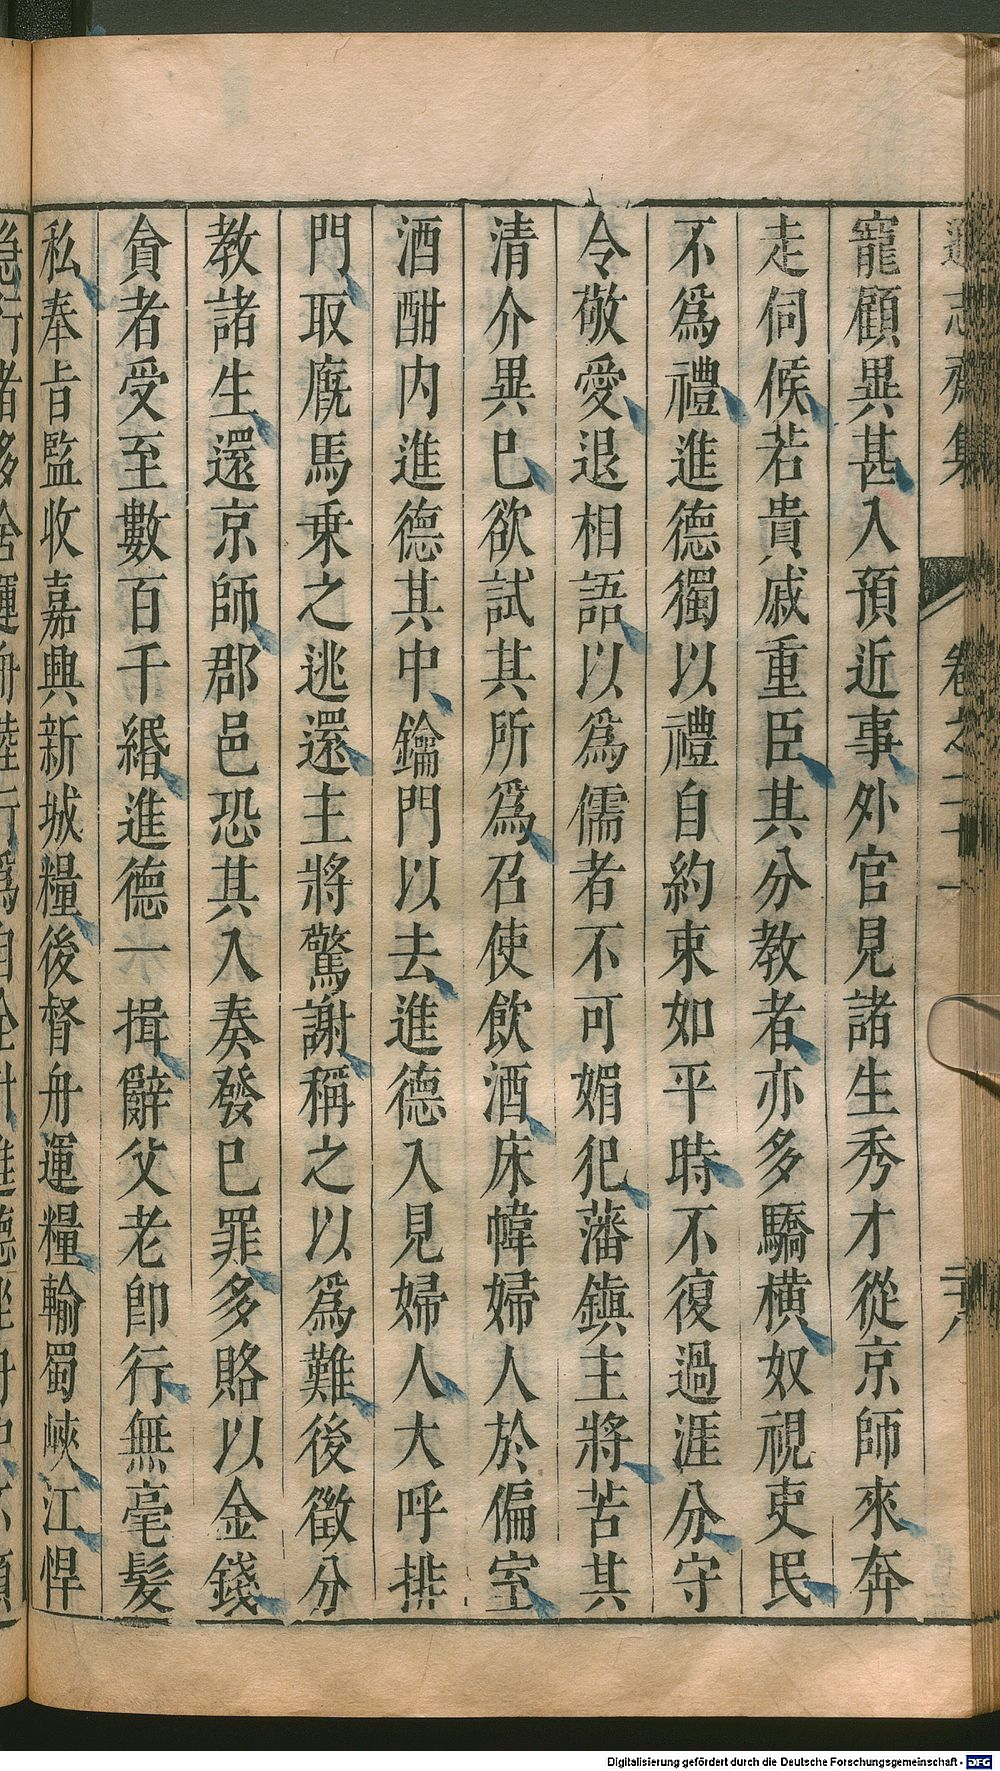 遜志齋集 卷之二十一 二十八
寵顧異甚入預近事外官見諸生秀才從京師來奔
走伺候若貴戚重臣其分教者亦多驕橫奴視吏民
不爲禮進德獨以禮自約束如平時不復過涯分守
令敬愛退相語以爲儒者不可媚犯藩鎮主將苦其
清介異巳欲試其所爲召使飲酒床幃婦人於偏室
酒酣内進德其中鑰門以去進德入見婦人大呼排
門取廐馬乗之逃還主將驚謝稱之以爲難後徵分
教諸生還京師郡邑恐其入奏發巳罪多賂以金錢
貪者受至數百千緡進德一揖辭父老卽行無毫髮
私奉旨監收嘉興新城糧後督舟運糧輸蜀峽江悍
急行者多舍運舟陸行爲自全計進德坐舟中
Digitalisierung gefördert durch die Deutsche Forschungsgemeinschaft - DFG